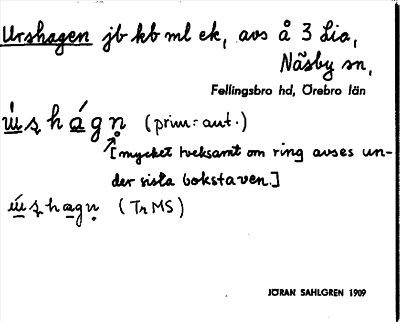 Urshagen jb kb ml ek, avs å 3 Lia,
Näsby sn,
Fellingsbro hd, Örebro län
(prim.- aut.)
[mycket tveksamt om ring avses un-
der sista bokstaven.]
(Tr MS)
JÖRAN SAHLGREN 1909